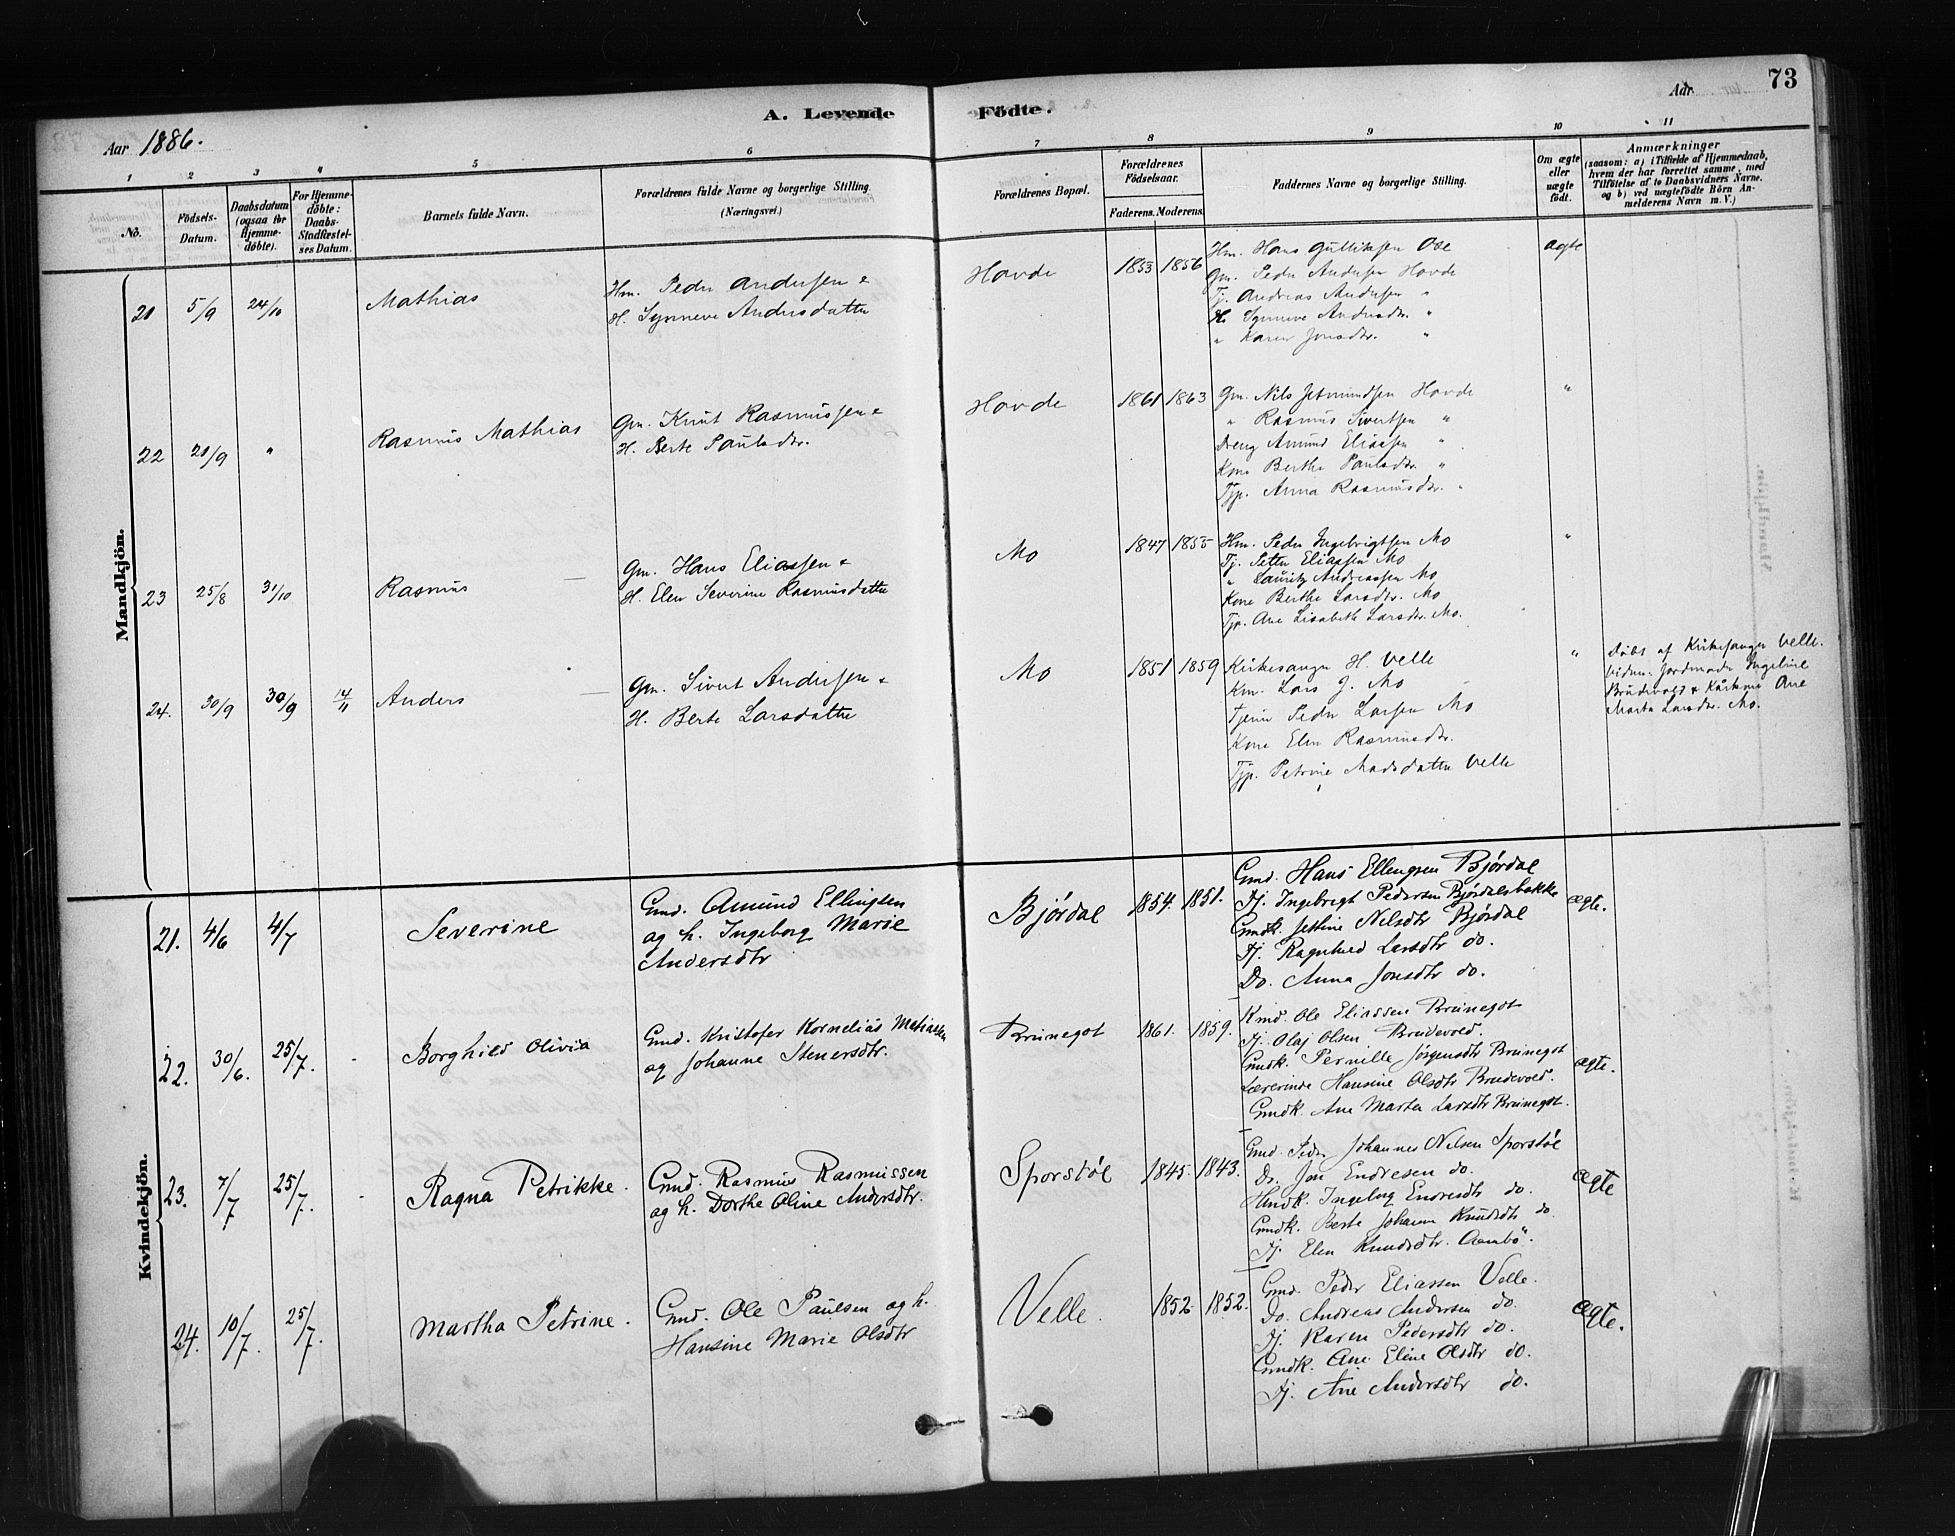 73
A. Levende Fødte.
Aar 1886.
Aar
1 2 3 4 5 6 7 8 9 10 11
No.
Fødsels-Datum.
Daabsdatum (ogsaa for Hjemmedøbte).
For Hjemmedøbte: Daabs-Stadfæstelses Datum.
Barnets fulde Navn.
Forældrenes fulde Navne og borgerlige Stilling. (Næringsvei.)
Forældrenes Bopæl.
Forældrenes Fødselsaar.
Faderens. Moderens.
Faddernes Navne og borgerlige Stilling.
Om ægte eller uægte født.
Anmærkninger
(saasom: a) i Tilfælde af Hjemmedaab, hvem der har forrettet samme, med Tilføielse af to Daabsvidners Navne. og b) ved uægtefødte Børn Anmelderens Navn m. V.)
Mandkjön.
21 5/9 24/10 Mathias
Hm. Peder Andersen &
H. Synneve Andersdatter
Hovde 1853 1856
Hm. Hans Gulliksen Ose
Gm. Peder Andersen Hovde
Tj. Andreas Andersen "
H. Synneve Andersdr. "
" Karen Jonsdr. "
ægte
22 21/9 " Rasmus Mathias
Gm. Knut Rasmussen &
H. Berte Paulsdr.
Hovde 1861 1863
Gm. Nils Jetmundsen Hovde
" Rasmus Sivertsen "
Dreng Amund Eliassen "
Kone Berthe Paulsdr. "
Tjp. Anna Rasmusdr. "
"
23 25/8 31/10 Rasmus
Gm. Hans Eliassen &
H. Elen Severine Rasmusdatter
Mo 1847 1855
Hm. Peder Ingebrigtsen Mo
Tj. Petter Eliassen Mo
" Lauritz Andreassen Mo
Kone Berthe Larsdr. Mo
Tjp. Ane Lisabeth Larsdr. Mo.
"
24. 30/9 30/9 14/11 Anders
Gm. Sivert Andersen &
H. Berte Larsdatter
Mo 1851 1859
Kirkesanger H. Velle
Km. Lars J. Mo
Tjener Peder Larsen Mo
Kone Elen Rasmusdr.
Tjp. Petrine Madsdatter Velle
"
Døbt af Kirkesanger Velle.
Vidner: Jordmoder Ingeline
Brudevold & Kårkone Ane
Marta Larsdr. Mo.
Kvindekjön.
21. 4/6 4/7 Severine
Gmd. Amund Ellingsen
og h. Ingeborg Marie
Andersdtr
Bjørdal 1854. 1851.
Gmd. Hans Ellengsen Bjørdal
Tj. Ingebrigt Pedersen Bjørdalsbakke
Gmdk. Jettine Nilsdtr Bjørdal
Tj. Ragnhild Larsdtr do.
Do. Anna Jonsdtr do.
ægte.
22. 30/6. 25/7. Borghild Olivia
Gmd. Kristofer Kornelius Matiassen
og Johanne Stenersdtr.
Brunegot 1861. 1859.
Kmd. Ole Eliassen Brunegot
Tj. Olaj Olsen Brudevold.
Gmdk. Pernille Jørgensdtr Brunegot
Lærerinde Hansine Olsdtr Brudevold.
Gmdk. Ane Marta Larsdtr Brunegot.
ægte.
23. 7/7 25/7. Ragna Petrikke.
Gmd. Rasmus Rasmussen
og h. Dorthe Oline Andersdtr.
Sporstøl 1845. 1843.
Gmd. Peder Johannes Nilsen Sporstøl
Do. Jon Endresen do.
Hmdk. Ingeborg Endresdtr do.
Gmdk. Berte Johanne Knudsdtr do.
Tj. Elen Knudsdtr.
ægte
24. 10/7. 25/7. Martha Petrine.
Gmd. Ole Paulsen og h.
Hansine Marie Olsdtr
Velle. 1852. 1852.
Gmd. Peder Eliassen Velle.
Do. Andreas Andersen do.
Tj. Karen Pedersdtr do.
Gmdk. Ane Eline Olsdtr do.
Tj. Ane Andersdtr do.
ægte.